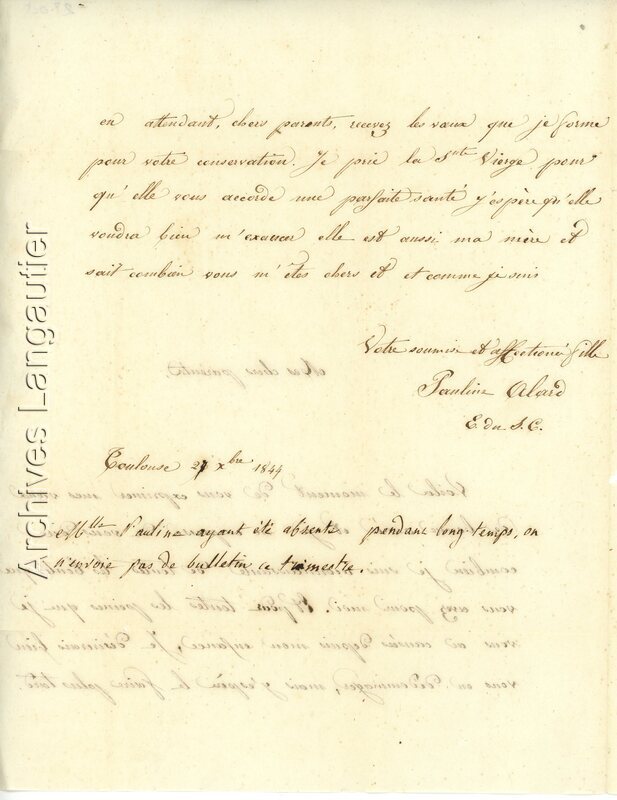 en attendant, chers parents, recevez les vœux que je forme
pour votre conservation. Je prie la Snte Vierge pour
qu'elle vous accorde une parfaite santé j'espère qu'elle
voudra bien m'exaucer elle est aussi ma mère et
sait combien vous m'êtes chers et et comme je suis
Votre soumise et affectioné fille
Pauline Alard
E. du S. C.
Toulouse 27 xbre 1844
Mlle Pauline ayant été absente pendant long temps, on
n'envoie pas de bulletin ce trimestre.
Archives Langautier